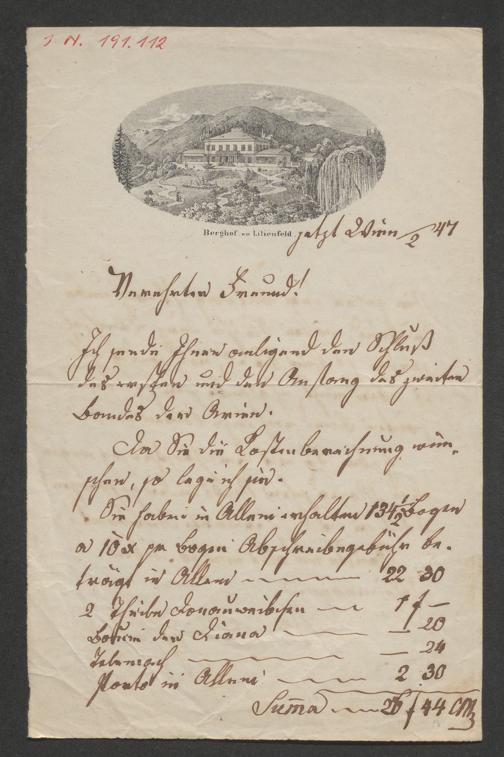 J. N. 191.112
Berghof zu Lilienfeld
jetzt Wien 2/ 47
Verehrter Freund!
Ich sende Ihnen anliegend den Schluß
des ersten und den Anfang des zweiten
Bandes der Arien.
Da Sie die Kostenberechnung wün-
schen, so lege ich sie.
Sie haben in Allem erhalten 134 1/2 Bogen
a 10 x pr Bogen Abschreibegebühr be-
trägt in Allem 22 30
2 Theile Donauweibchen 1 f —
Baum der Diana — 20
Telemach — 24
Porto in Allem 2 30
Suma 26 f 44 CM